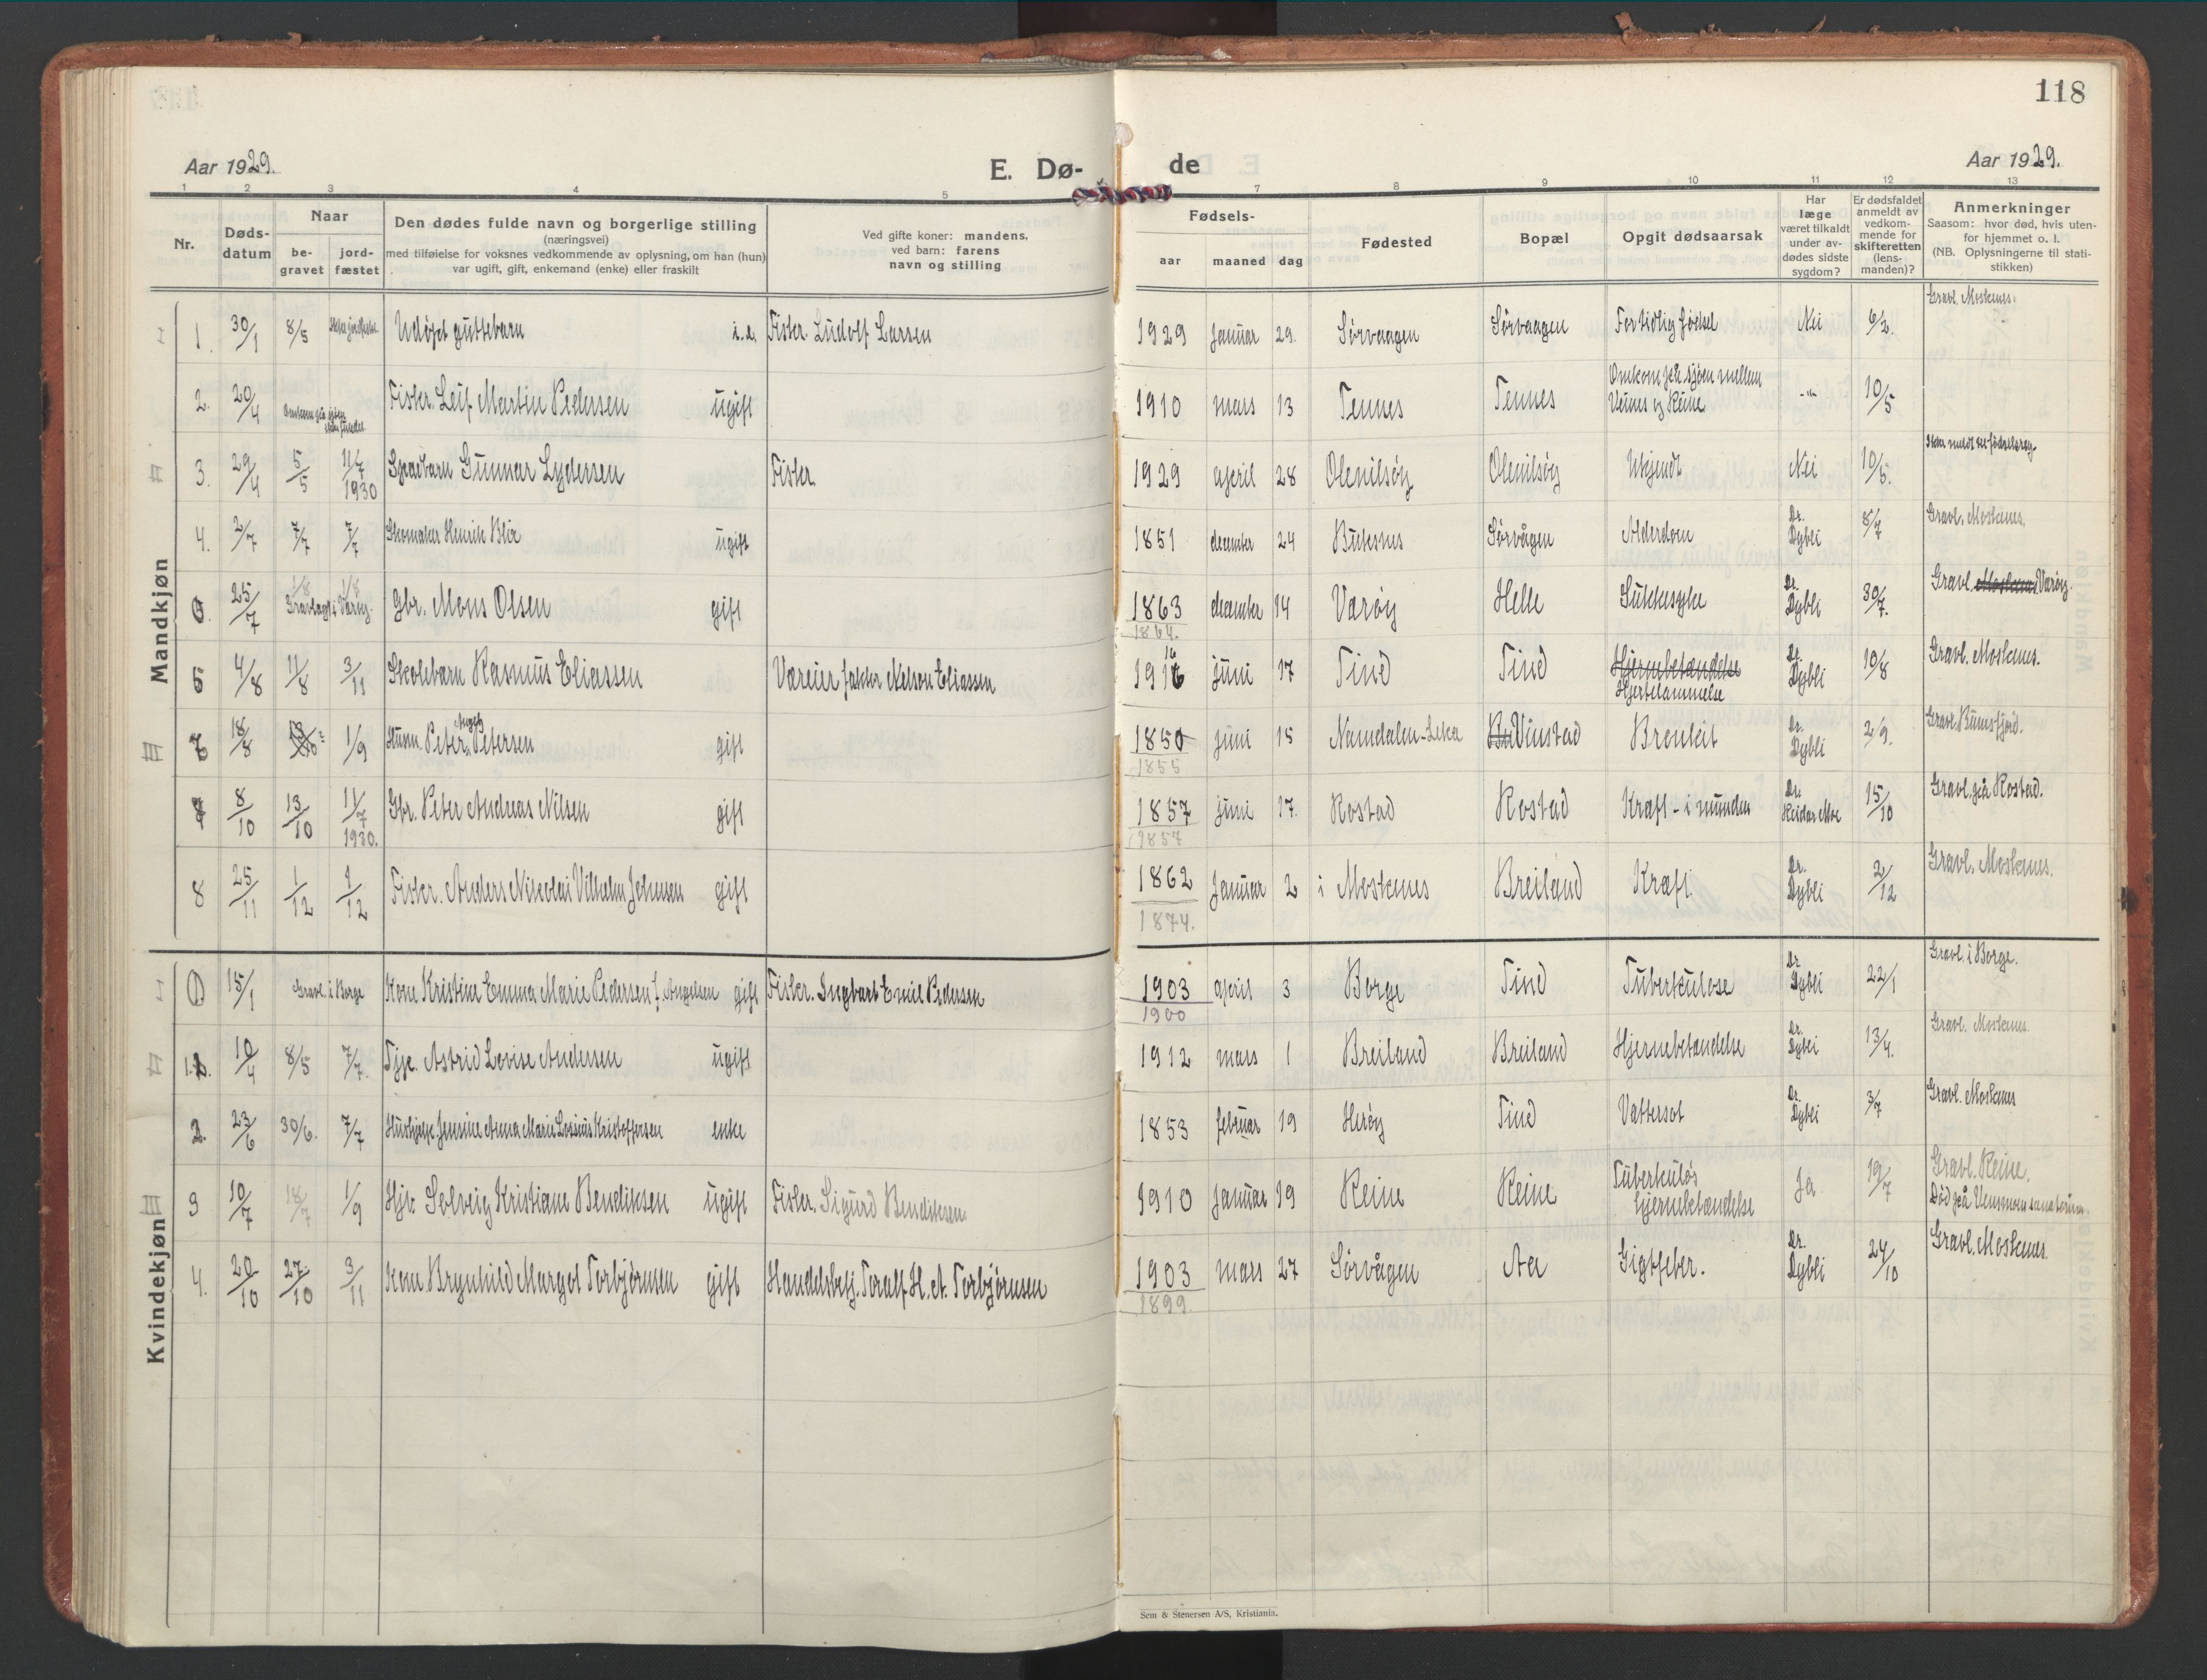 118
Aar 1929.
E. Dø-
de
Aar 1929.
1 2 3 4 5 7 8 9 10 11 12 13
Nr.
Døds-datum
Naar
be-gravet
jord-fæstet
Den dødes fulde navn og borgerlige stilling
(næringsvei)
med tilføielse for voksnes vedkommende av oplysning, om han (hun)
var ugift, gift, enkemand (enke) eller fraskilt
Ved gifte koner: mandens,
ved barn: farens
navn og stilling
Fødsels-
aar maaned dag
Fødested
Bopæl
Opgit dødsaarsak
Har læge været tilkaldt under av-dødes sidste sygdom?
Er dødsfaldet anmeldt av vedkom-mende for skifteretten (lens-manden)?
Anmerkninger
Saasom: hvor død, hvis uten-for hjemmet o. l.
(NB. Oplysningerne til stati-stikken)
Mandkjøn
1. 30/1 8/5 Udøpt guttebarn Fisker. Ludolf Larsen 1929 Januar 29. Sørvaagen Sørvaagen Fortidlig fødsel Nei 6/2. Gravl. Moskenes.
2. 20/4 Omkom på sjøen Fisker. Leif Martin Pedersen ugift 1910 mars 13 Tennes Tennes Omkom på sjøen mellem Veines og Reine -"- 10/5
3. 29/4 5/5 11/7 1930 Spædbarn Gunnar Lydersen Fisker 1929 april 28 Olenilsøy Olenilsøy Ukjendt Nei 10/5.
4. 2/7 7/7 7/7 Skomaker Henrik Blix ugift 1851 december 24 Buksnes Sørvågen Alderdom Dr. Dybli 8/7 Gravl. Moskenes.
25/7 1/8 1/8 Gravlagt i Værøy. Gbr. Mons Olsen gift 1863 1864. december 14 Værøy Helle Sukkersyke Dr. Dybli 30/7. Gravl. Moskenes Værøy.
4/8 11/8 3/11 Skolebarn Rasmus Eliassen Væreier fakter Nelson Eliassen 1916 juni 17 Tind Tind Hjernebetændelse Hjertelammelse Dr. Dybli 10/8 Gravl. Moskenes.
18/8 1/9 Husm. Peter Petersen gift 1850 1855 juni 15 Namdalen-Leka Vinstad Brenkeit Dr. Dybli 2/9. Gravl. Bunesfjord.
8/10 13/10 11/7 1930. Gbr. Peter Andreas Nilsen gift 1857 1857 juni 17. Rostad Rostad Kræft - i munden Dr. Reidar Moe 15/10 Gravl. på Rostad.
8 25/11 1/12 1/12 Fisker. Anders Nikolai Vilhelm Johnsen gift 1862 1874. Januar 2 i Moskenes Breiland Kræft. Dr. Dybli 2/12 Gravl. Moskenes.
Kvindekjøn
15/1 Gravl. i Borge Kone Kristine Emma Marie Pedersen f. Angelsen gift Fisker. Ingvart Emil Pedersen 1903 1900 april 3 Borge Tind Tuberkulose Dr. Dybli 22/1 Gravl. i Borge.
1. 10/4 8/5 7/7. Tjpe. Astrid Lovise Andersen ugift 1912 mars 1 Breiland Breiland Hjernebetændelse Dr. Dybli 13/4. Gravl. Moskenes.
2. 23/6 30/6. 7/7 Jensine Anna Marie Lossius Kristoffersen enke 1853 februar 19 Herøy Tind Vattersot Dr. Dybli 3/7 Gravl. Moskenes
3 10/7 18/7 1/9 Hjv. Solveig Kristiane Bendiksen ugift Fisker. Sigurd Bendiksen 1910 Januar 19 Reine Reine Tuberkuløs hjernebetændelse Ja 19/7 Gravl. Reine. Død på Vensmoen sanatorium.
4. 20/10 27/10 3/11 Kone Brynhild Margot Torbjørnsen gift Handelsbetj. Toralf H. A. Torbjørnsen 1903 1899. mars 27 Sørvågen Aa Gigtfeber. Dr. Dybli 24/10 Gravl. Moskenes.
Sem & Stenersen A/S, Kristiania.